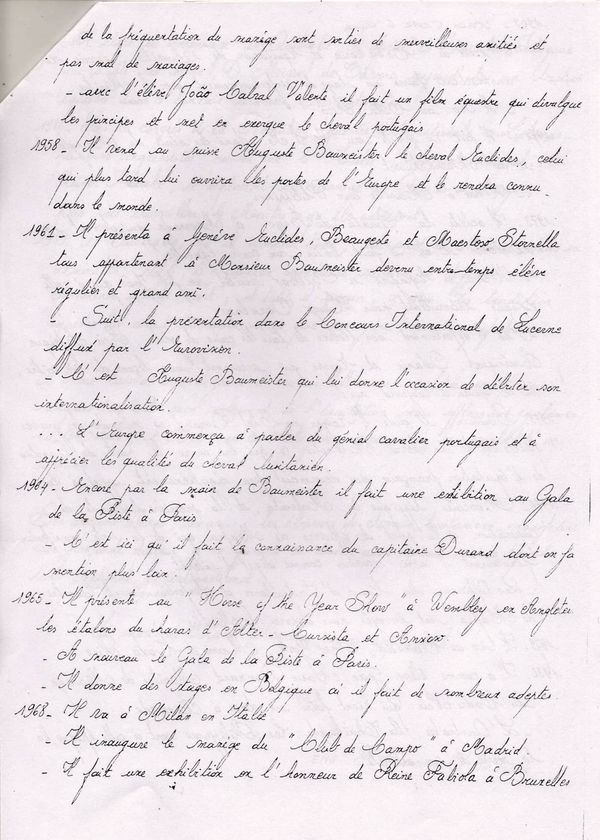 de la fréquentation du manège sont sorties de merveilleuses amitiés et
pas mal de mariages.
- avec l'élève João Cabral Valente il fait un film équestre qui divulgue
les principes et met en exergue le cheval portugais
1958 - Il vend au suisse Auguste Baumeister le cheval Euclides, celui
qui plus tard lui ouvrira les portes de l'Europe et le rendra connu
dans le monde.
1961 - Il présenta à Genéve Euclides, Beaugeste et Maestoso Stornella
tous appartenant à Monsieur Baumeister devenu entre-temps élève
régulier et grand ami.
- Suit, la présentation dans le Concours International de Lucerne
diffus par l'Eurovision.
- C'est Auguste Baumeister qui lui donne l'occasion de débuter son
internationalisation.
... L'Europe commença à parler du génial cavalier portugais et à
apprécier les qualités du cheval lusitanien.
1964 - Encore par la main de Baumeister il fait une exibition au Gala
de la Piste à Paris
- C'est ici qu'il fait la connaisance du capitaine Durand dont on fa
mention plus loin.
1965 - Il présente au "Horse of the Year Show" à Wembley en Angleter
les étalons du haras d'Alter - Curxista et Anxioso.
- A nouveau le Gala de la Piste à Paris.
- Il donne des stages en Belgique où il fait de nombreux adeptes.
1968 - Il va à Milan en Italie
- Il inaugure le manège du "Club de Campo" à Madrid.
- Il fait une exhibition en l'honneur de Reine Fabiola à Bruxelles